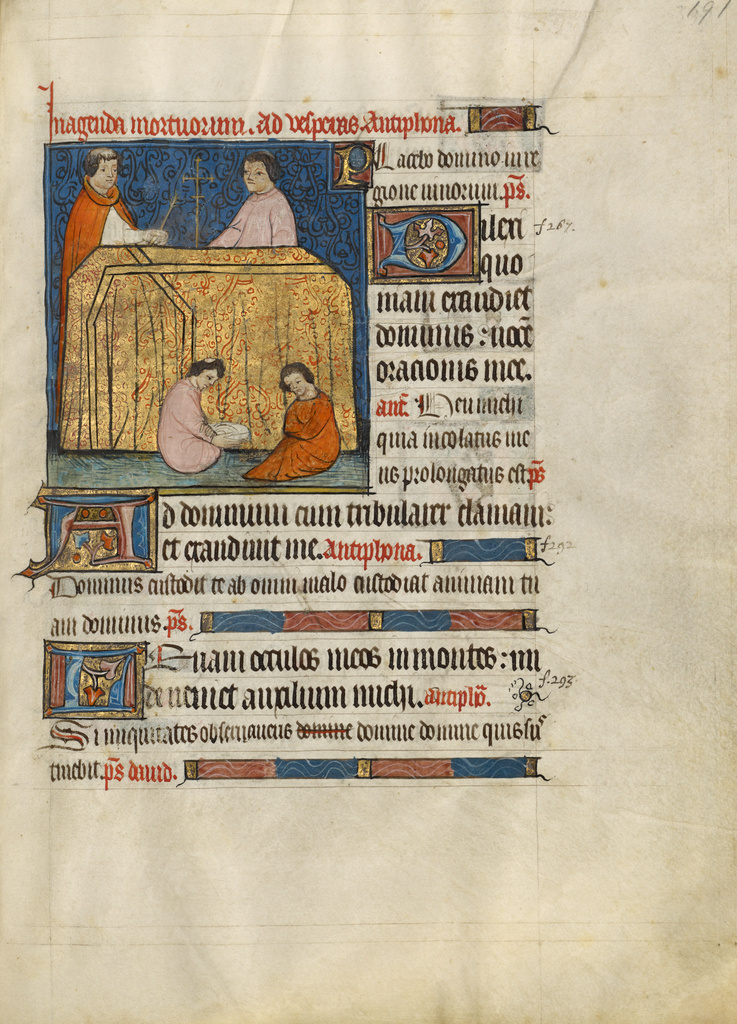 691
In agenda mortuorum. Ad vesperas. Antiphona.
Placebo domino in re
gione uiuorum. ps.
Dilexi f 267.
quo
niam exaudiet
dominus : uocem
orationis mee.
ant. Heu michi
quia incolatus me
us prolongatus est ps
Ad dominum cum tribularer clamaui:
et exaudiuit me. Antiphona. f 292
Dominus custodit te ab omni malo custodiat animam tu
am dominus. ps.
Leuaui occulos meos in montes : un
de ueniet auxilium michi. antipho. f. 293
Si iniquitates obseruaueris domine domine domine quis sus
tinebit. ps dauid.